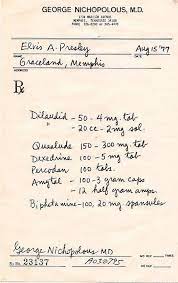 GEORGE NICHOPOLOUS, M.D.
MEMPHIS, TENNESSEE
Elvis A. Presley Aug 15 '77
Graceland, Memphis
ADDRESS
Rx
Dilaudid - 50 - 4 mg. tab
- 20 cc - 2 mg. sol.
Quaalude 150 - 300 mg. tab
Dexedrine 100 - 5 mg tab
Percodan 100 tabs.
Amytal - 100 - 3 gram caps
- 12 half gram amps.
Biphetamine - 100, 20 mg. spansules
George Nichopolous MD
No. 23137 AO30795